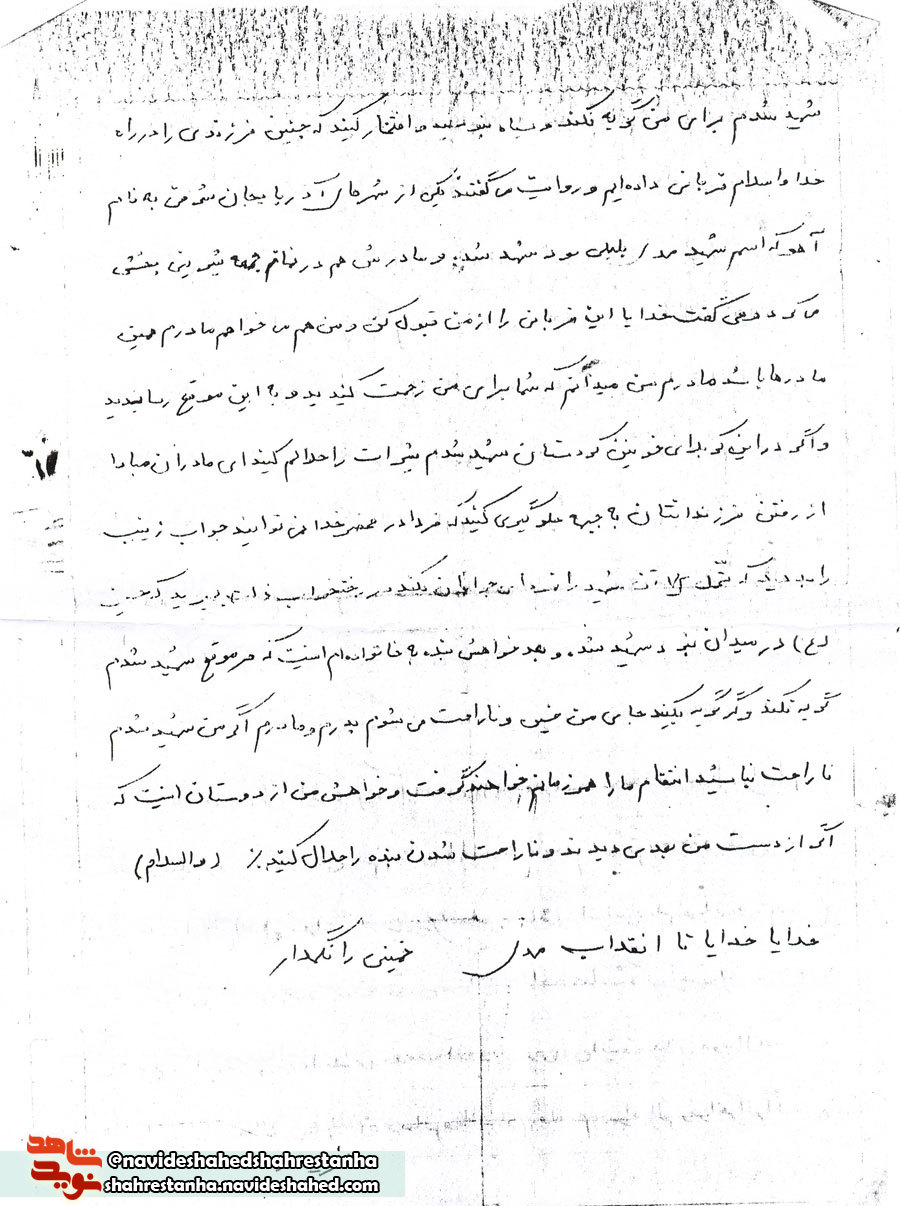 شهید شدم برای من گریه نکنند و سیاه نپوشید و افتخار کنید که چنین فرزندی را در راه
خدا و اسلام قربانی داده‌ایم و روایت می گفتند یکی از شهرهای آذربایجان شرقی به نام
آهو که اسم شهید بود شهید شد و مادرش هم در نماز جمعه شیرینی پخش
می کرد و می گفت خدایا این قربانی را از من قبول کن و من هم می خواهم مادرم همین
مادرها باشد مادرم من میدانم که شما برای من زحمت کشیدید و به این موقع رسانیدید
و اگر در این کربلای خونین کردستان شهید شدم شیرات را حلالم کنید ای مادران مبادا
از رفتن فرزندانتان به جبهه جلوگیری کنید که فردا در محضر خدا نمی توانید جواب زینب
را بدهید که تحمل ۷۲ تن شهید را ای جوانان نکند در رختخواب ذلت بمیرید که حسین
(ع) در میدان نبرد شهید شد و بعد خواهش بنده به خانواده‌ام اینست که هر موقع شهید شدم
گریه نکنند و گر گریه بکنید من خیلی ناراحت می شوم پدرم و مادرم اگر من شهید شدم
ناراحت نباشید انتقام ما را همرزمانم خواهند گرفت و خواهش من از دوستان اینست که
اگر از دست من بدی دیدند و ناراحت شدن بنده را حلال کنید ٪ (والسلام)
خدایا خدایا تا انقلاب مهدی خمینی را نگهدار
شاهد
نوید
@navideshahedshahrestanha
shahrestanha.navideshahed.com